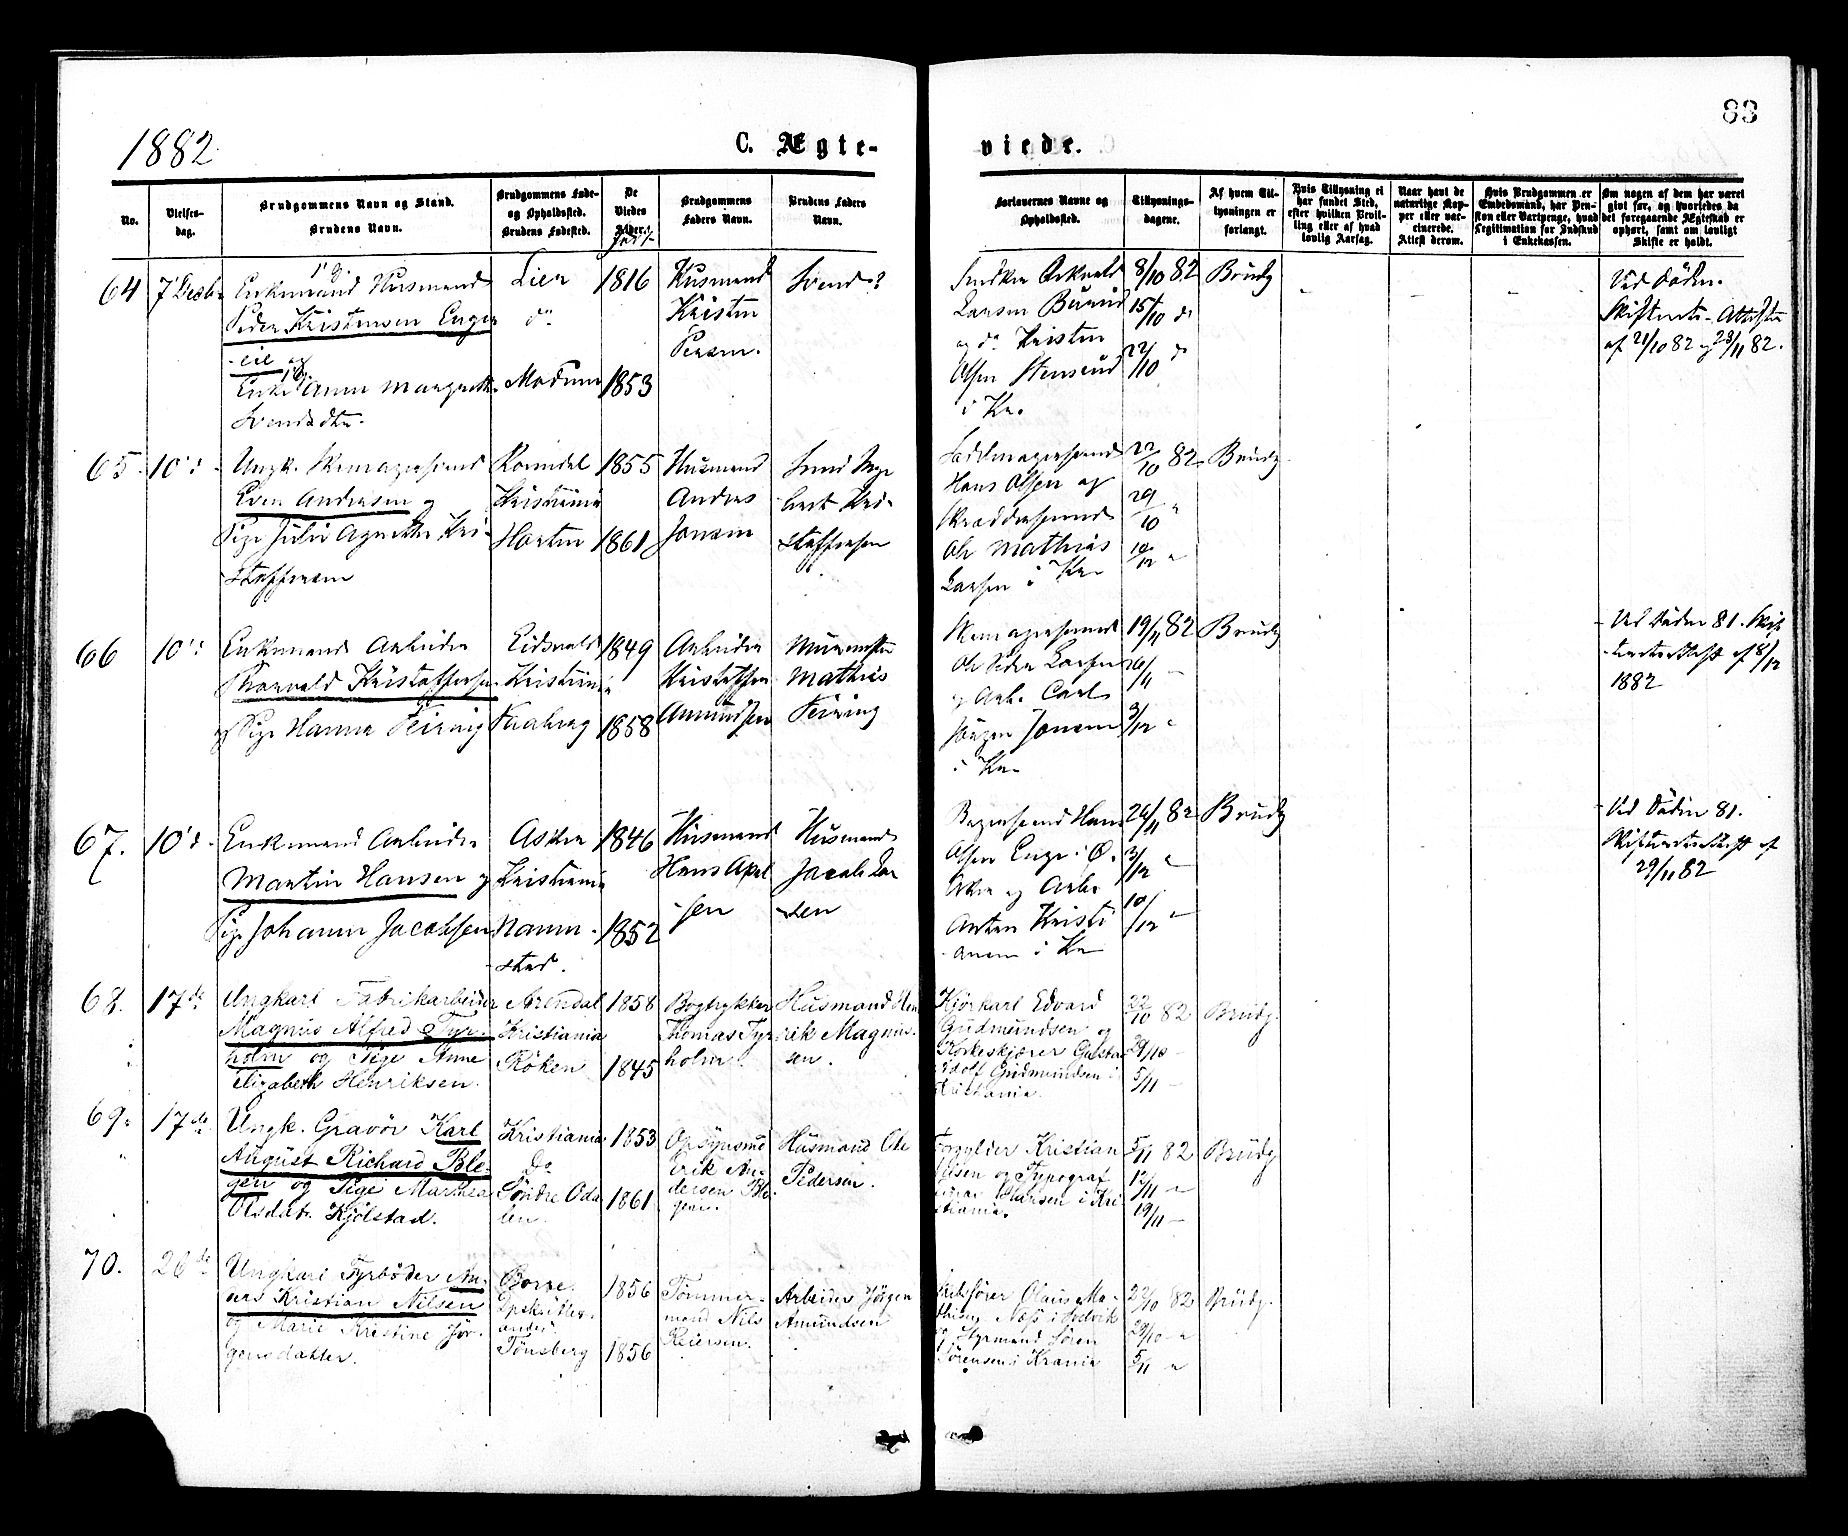 83
1882
C. Ægte-
viede.
No.
Vielses-
dag.
Brudgommens Navn og Stand.
Brudens Navn.
Brudgommens Føde-
og Opholdssted.
Brudens Fødested.
De
Viedes
Alder.
Brudgommens
Faders Navn.
Brudens Faders
Navn.
Forlovernes Navne og
Opholdssted.
Tillysnings-
dagene.
Af hvem Til-
lysningen er
forlangt.
Hvis Tillysning ei
har fundet Sted,
efter hvilken Bevil-
ling eller af hvad
lovlig Aarsag.
Naar havt de
naturlige Kop-
per eller vac-
cinerede.
Attest derom.
Hvis Brudgommen er
Embedsmand, har Pen-
sion eller Vartpenge, hvad
Legitimation for Indskud
i Enkekassen.
Om nogen af dem har været
gift før, og hvorledes da
det foregaaende Ægteskab er
ophørt, samt om lovligt
Skifte er holdt.
64
7 Decbr
Enkemand Husmand
Peder Kristensen Enger-
eie og
Enke Anne Margrethe
Svendsdtr.
Lier
do
Modum
1816
1853
Husmand
Kristen
Svend ?
Snedker
Larsen
og do Kristen
Olsen Stensrud
i Kra
8/10 82
15/10 do
22/10 do
Brudg
Ved Døden.
Skifterets-Attester
af 21/10 82 og 23/11 82.
65
10 d
Ungk. Skomagersvend
Even Andersen og
Pige Julie Agnethe Kri-
stoffersen
Kristiania
Horten
1855
1861
Husmand
Andreas
Jensen
Kri-
stoffersen
Sadelmagersvend
Hans Olsen og
Skræddersvend
Ole Mathias
Larsen i Kra
22/10 82
29/10 "
Brudg
66
10 d
Enkemand Arbeider
Thorvald Kristoffersen
og Pige Hanna Feiring
Eidsvold
Kristiania
Faaberg
1849
1858
Arbeider
Kristoffer
Amundsen
Murmester
Mathias
Feiring
Skomagersvend
Ole Peder Larsen
og Arb. Carl
Jørgen Jensen
i Kra
19/11 82
26/11 -
3/12 -
Brudg
Ved Døden 81. Skif-
teretsattest af 8/12
1882
67.
10 d
Enkemand Arbeider
Martin Hansen og
Pige Johanne Jacobsen
Asker
Kristiania
Nanne-
stad.
1846
1852
Husmand
Hans Axel
sen
Husmand
Jacob Lar
sen
Bagersvend Hans
Olsen Enge i Ø.
Aker og Arb.
Anton Kristi
ansen i Kra
26/11 82
3/12 "
10/12 -
Brudg
Ved Døden 81.
Skifteretsattest af
29/11 82
68.
17 de
Ungkarl Fabrikarbeider
Magnus Alfred Tyr-
holm og Pige Anne
Elizabeth Henriksen.
Arendal
Kristiania
Röken
1858
1845
Bogtrykker
Thomas Tyr-
holm.
Husmand Hen
rik Magnus-
sen.
Kjörkarl Edvard
Gudmundsen og
Korkeskjærer Gustav
Adolf Gudmundsen i
Kristiania.
22/10 82
29/10 -
5/11 -
Brudg.
69.
17 de
Ungk. Gravør Karl
August Richard Ble-
gen og Pige Marthea
Olsdatr. Kjölstad.
Kristiania
Do
Söndre Oda
len.
1853
1861
Opsynsmd
Erik An-
dersen Ble-
gen.
Husmand Ole
Pedersen.
Forgylder Kristian
Nilsen og Typograf
Einar Hansen i Kri-
stiania.
5/11 82
12/11 "
19/11 -
Brudg
70.
26 de
Ungkarl Fyrböder An-
ders Kristian Nilsen
og Marie Kristine Jör-
gensdatter.
Borre.
Tönsberg
1856
1856
Tömmer-
mand Nils
Reiersen.
Arbeider Jörgen
Amundsen
Olaus Ma-
thisen Næss i
og Styrmand Sören
Sörensen i Krania
22/10 82
29/10 "
5/11 "
Brudg.